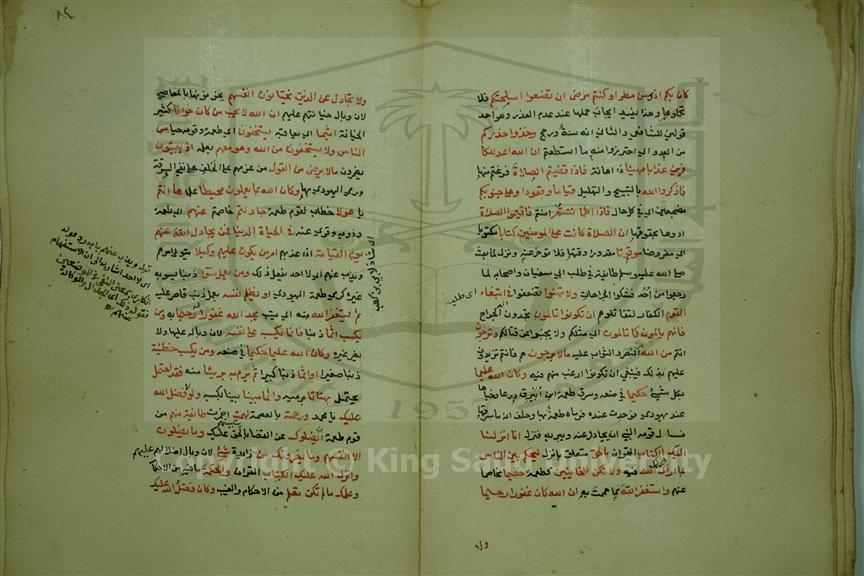 كان بكم اذى من مطر او كنتم مرضى ان تضعوا اسلحتكم فلا
تحملوها وهذا يفيد ايجاب حملها عند عدم العذر وهو احد
قولين للشافعي والثاني انه سنة ورجح وخذوا حذركم
من العدو اي احترزوا منه ما استطعتم ان الله اعد للكا
فرين عذابا مهينا ذا اهانة فاذا قضيتم الصلاة فرغتم منها
فاذكروا الله بالتسبيح والتهليل قياما وقعودا وعلى جنوبكم
مضطجعين اي في كل حال فاذا اطمأننتم امنتم فاقيموا الصلاة
ادوها بحقوقها ان الصلاة كانت على المومنين كتابا مكتوبا
اي مفروضا موقوتا مقدرا وقتها فلا تؤخر عنه ونزل لما بعث
صلى الله عليه وسلم طائفة في طلب ابي سفيان واصحابه لما
رجعوا من احد فشكوا الجراحات ولا تهنوا تضعفوا في ابتغاء
اي طلب
القوم الكفار لتقاتلوهم ان تكونوا تالمون تجدون الم الجراح
فانهم يالمون كما تالمون اي مثلكم ولا يجبنوا عن قتالكم وترجون
انتم من الله النصر والثواب عليه مالا يرجون هم فانتم تزيدون
عليهم بذلك فينبغي ان تكونوا ارغب منهم فيه وكان الله عليما
بكل شيئ حكيما في صنعه وسرق طعمة ابن ابيرق درعا وخباها
عند يهودي فوجدت عنده فرماه طعمة بها وحلف انه ما سرقها
فسأل قومه النبي ان يجادل عنه ويبريه فنزل انا انزلنا
اليك الكتاب القران بالحق متعلق بانزل لتحكم بين الناس
بما اراك الله فيه ولا تكن للخاينين كطعمة خصيما مخاصما
عنهم واستغفر الله مما هممت به ان الله كان غفورا رحيما
ولا
٨٤
ولا تجادل عن الذين يختانون انفسهم يخونونها بالمعاصي
لان وبال خيانتهم عليهم ان الله لا يحب من كان خوانا كثير
الخيانة اثيما اي يعاقبه يستخفون اي طعمة وقومه حيا من
الناس ولا يستخفون من الله وهو معهم بعلمه اذ يبيتون
يضمرون مالا يرضى من القول من عزمهم على الحلف على نفي السرقة
ورمي اليهودي بها وكان الله بما يعملون محيطا علما ها انتم
يا هولاء خطاب لقوم طعمة جادلتم خاصمتم عنهم اي طعمة
وذويه وقرئ عنه في الحياة الدنيا فمن يجادل الله عنهم
يوم القيامة اذا عذبهم ام من يكون عليهم وكيلا يتولى امرهم
ويذب عنهم اي لا احد يفعل ذلك ومن يعمل سوا ذنبا يسوء به
غيره كرمي طعمة اليهودي او يظلم نفسه يعمل ذنب قاصر عليه
ثم يستغفر الله منه اي يتب يجد الله غفورا رحيما به ومن
يكسب اثما ذنبا فانما يكسبه على نفسه لان وباله عليها ولا
يضر غيره وكان الله عليما حكيما في صنعه ومن يكسب خطيئة
ذنبا صغيرا او اثما ذنبا كبيرا ثم يرم به بريئا منه فقد احتمل
تحمل بهتانا برميه واثما مبينا بينا بكسبه ولولا فضل الله
عليك يا محمد ورحمته بالعصمة لهمت اضمرت طائفة منهم من
قوم طعمة ان يضلوك عن القضا بالحق وما يضلون
الا انفسهم وما يضرونك من زايدة شيئ لان وبال اضلالهم عليهم
وانزل الله عليك الكتاب القران والحكمة ما فيه من الاحكام
وعلمك مالم تكن تعلم من الاحكام والغيب وكان فضل الله عليك
Copyright © King Saud University
1957